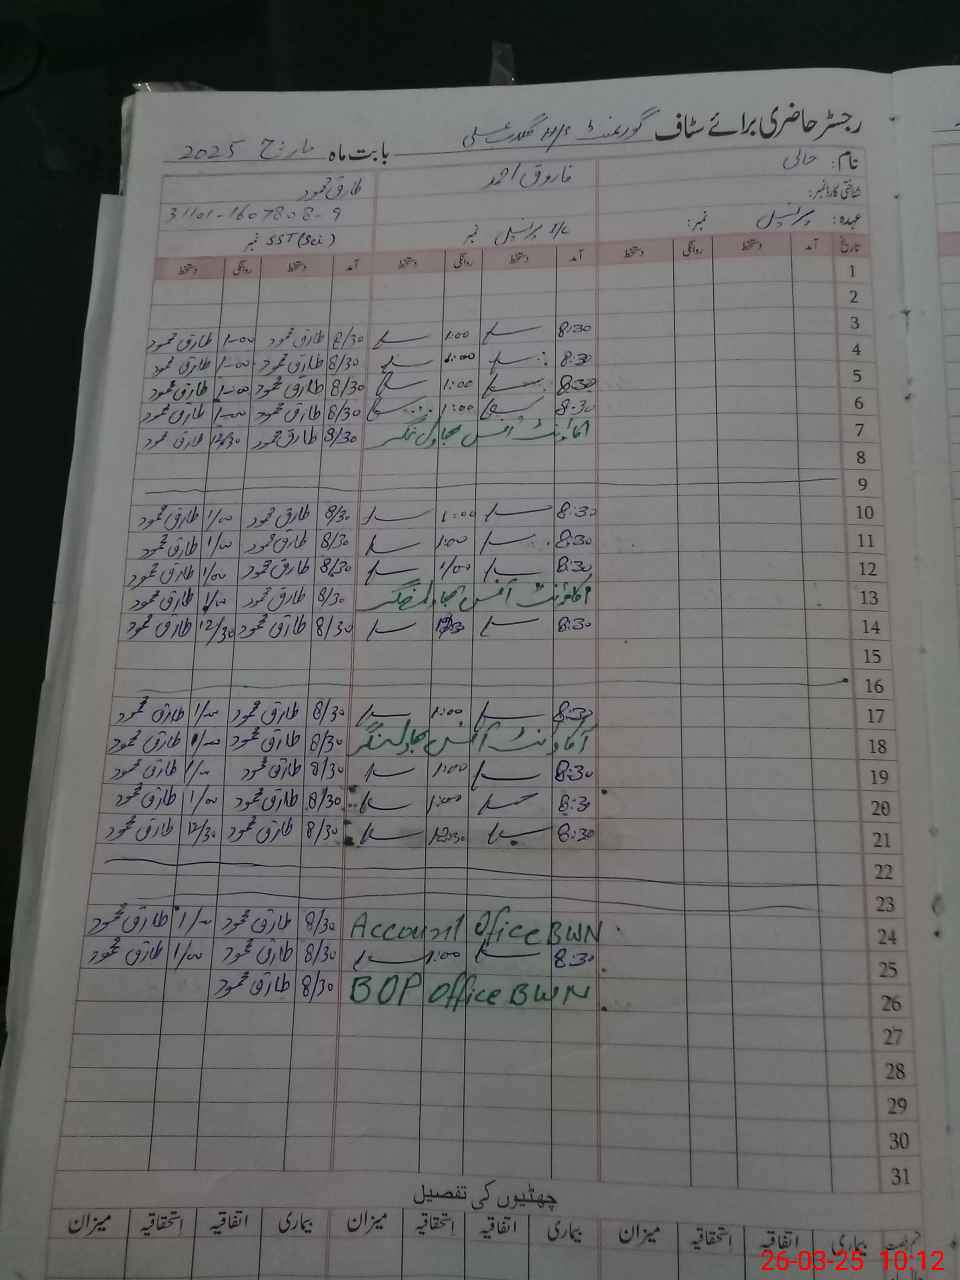 رجسٹر حاضری برائے سٹاف گورنمنٹ بابت ماہ مارچ 2025
نام: خالی فاروق احمد طارق محمود
شناختی کارڈ نمبر: 31101-1607808-9
عہدہ: پرنسپل نمبر: I/C پرنسپل نمبر SST(Sci) نمبر
تاریخ آمد دستخط روانگی دستخط آمد دستخط روانگی دستخط آمد دستخط روانگی دستخط
1
2
3 8:30 1:00 8/30 طارق محمود 1-00 طارق محمود
4 8:30 1:00 8/30 طارق محمود 1-00 طارق محمود
5 8:30 1:00 8/30 طارق محمود 1-00 طارق محمود
6 8:30 1:00 8/30 طارق محمود 1-00 طارق محمود
7 اکاونٹ آفس بہاولنگر 8/30 طارق محمود 12/30 طارق محمود
8
9
10 8:30 1:00 8/30 طارق محمود 1/00 طارق محمود
11 8:30 1:00 8/30 طارق محمود 1/00 طارق محمود
12 8:30 1/00 8/30 طارق محمود 1/00 طارق محمود
13 اکاونٹ آفس بہاولنگر 8/30 طارق محمود 1/00 طارق محمود
14 8:30 8/30 طارق محمود 12/30 طارق محمود
15
16
17 8:30 1:00 8/30 طارق محمود 1/00 طارق محمود
18 اکاونٹ آفس بہاولنگر 8/30 طارق محمود 1/00 طارق محمود
19 8:30 1:00 8/30 طارق محمود 1/00 طارق محمود
20 8:30 1:00 8/30 طارق محمود 1/00 طارق محمود
21 8:30 12:30 8/30 طارق محمود 12/30 طارق محمود
22
23
24 Account Office BWN 8/30 طارق محمود 1/00 طارق محمود
25 8:30 1:00 8/30 طارق محمود 1/00 طارق محمود
26 BOP Office BWN 8/30 طارق محمود
27
28
29
30
31
چھٹیوں کی تفصیل
بیماری اتفاقیہ استحقاقیہ میزان بیماری اتفاقیہ استحقاقیہ میزان بیماری اتفاقیہ استحقاقیہ میزان
26-03-25 10:12